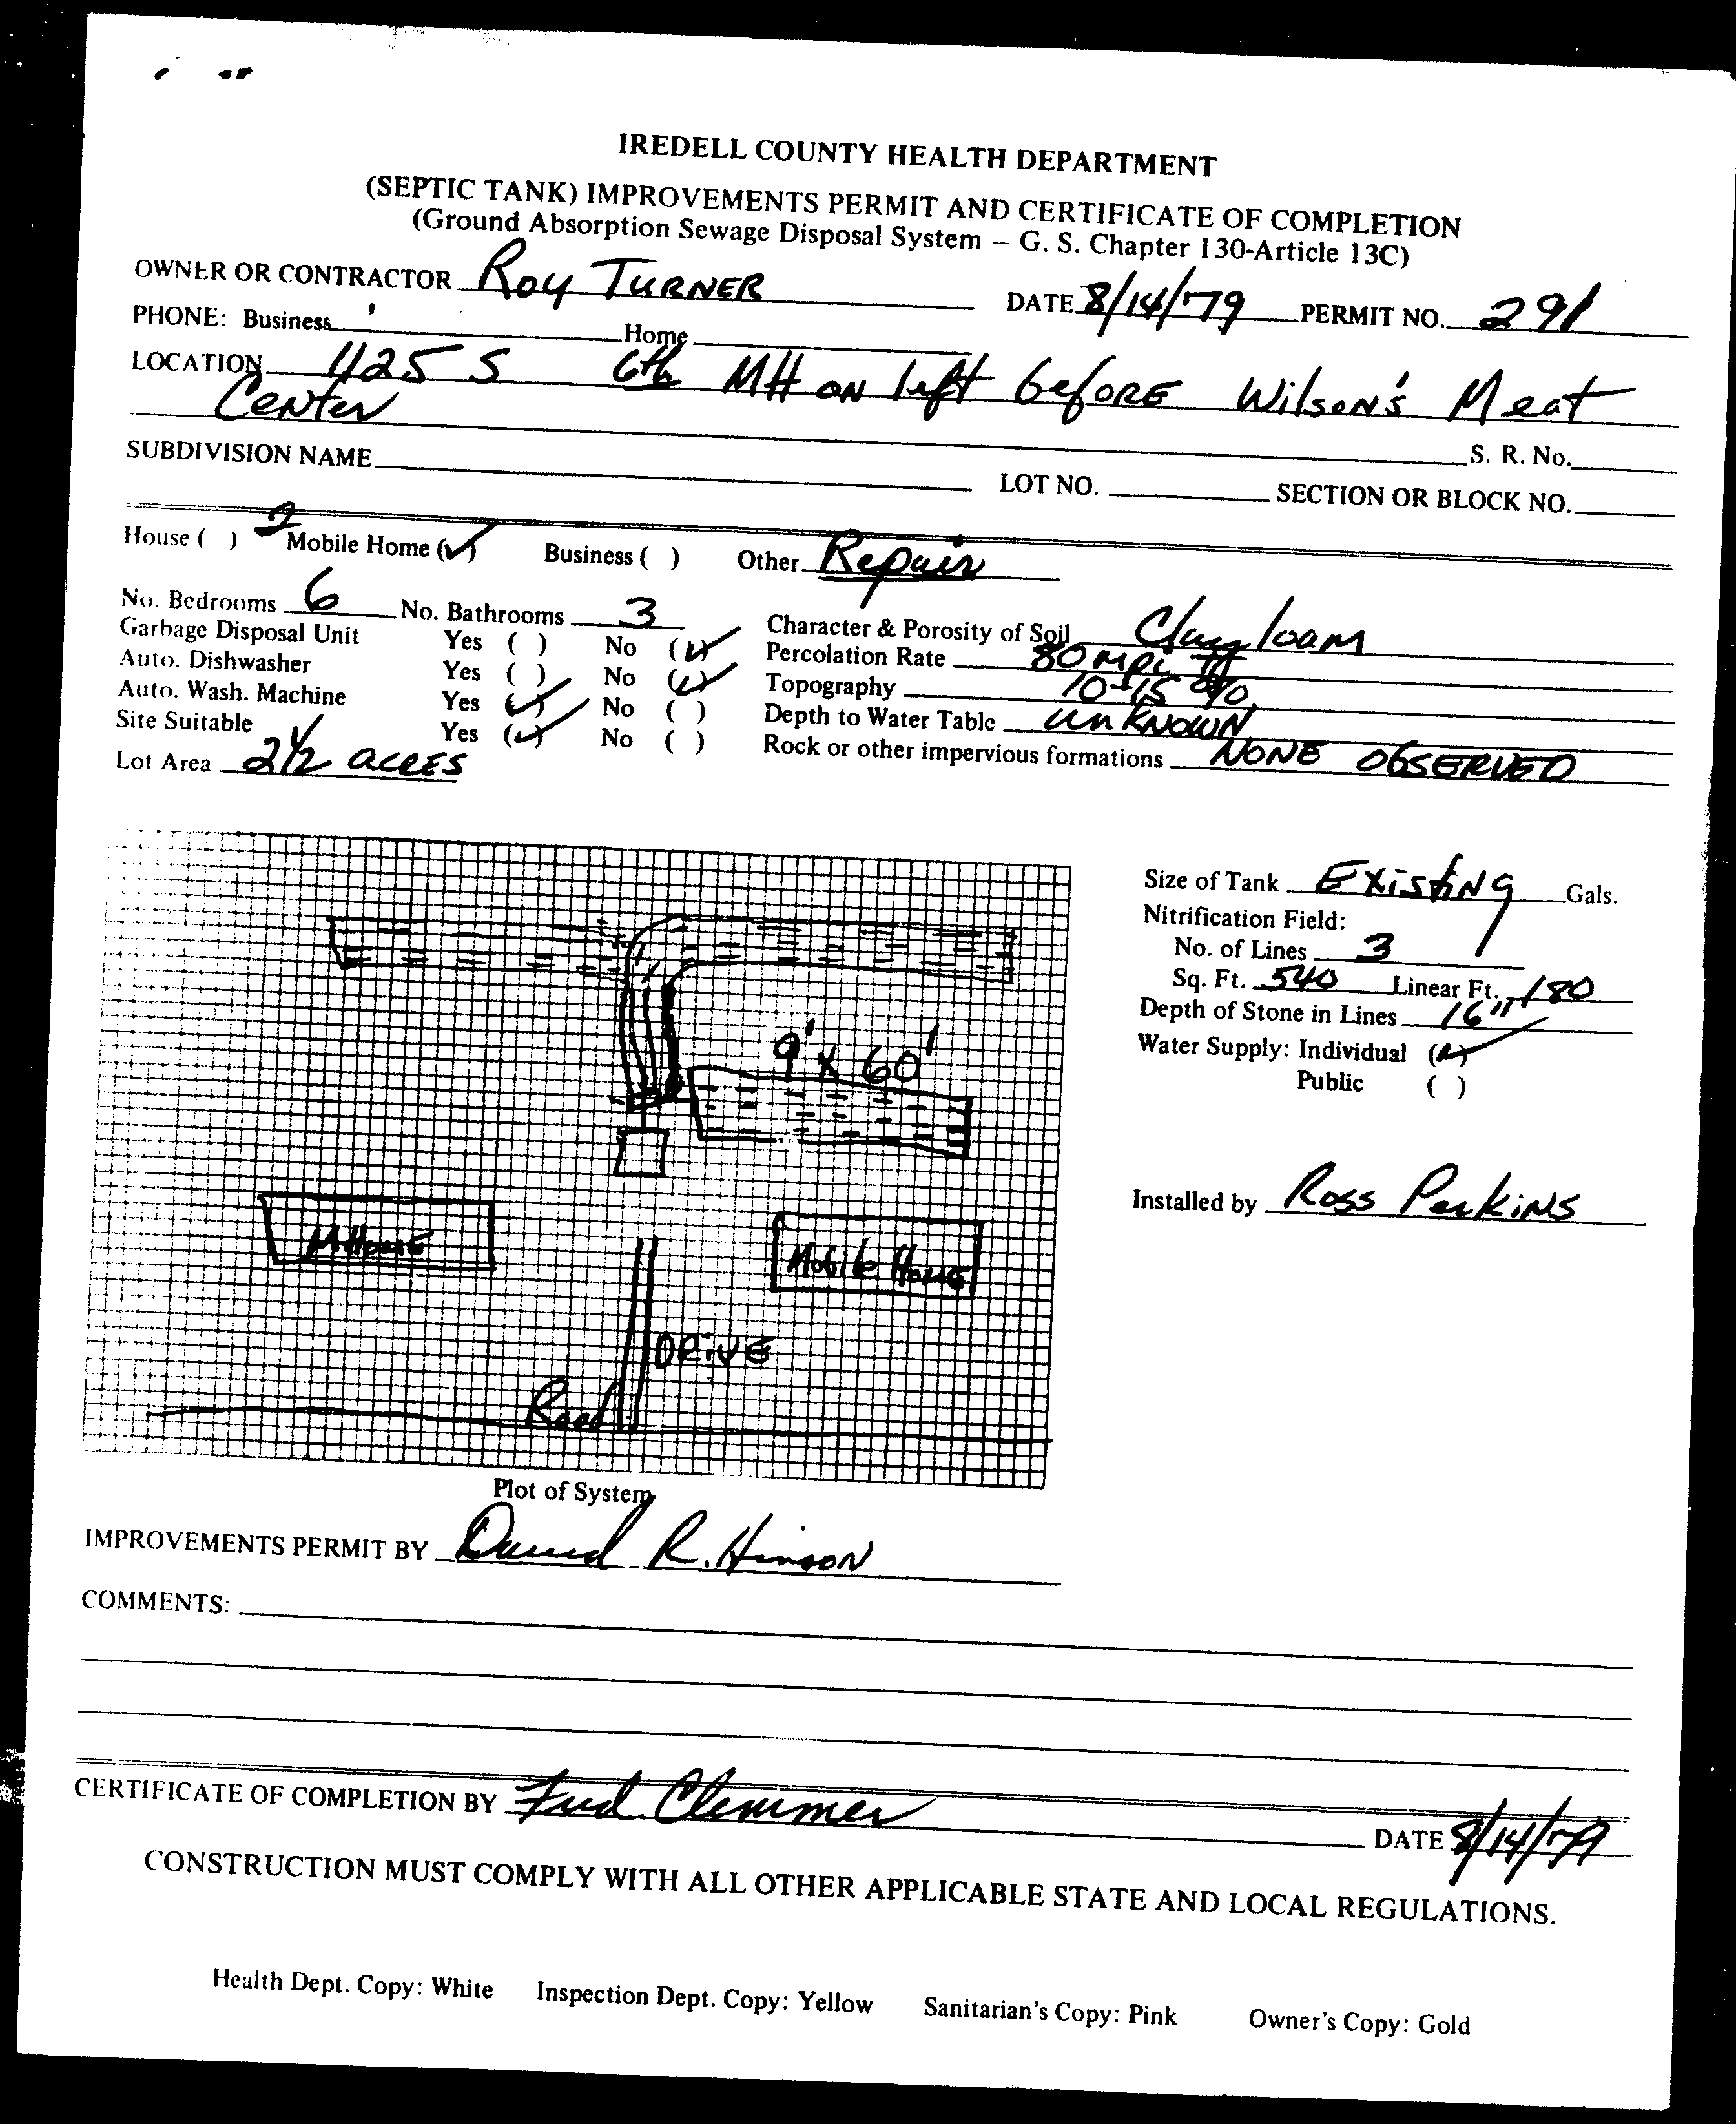 IREDELL COUNTY HEALTH DEPARTMENT
(SEPTIC TANK) IMPROVEMENTS PERMIT AND CERTIFICATE OF COMPLETION
(Ground Absorption Sewage Disposal System – G. S. Chapter 130-Article 13C)
OWNER OR CONTRACTOR Roy TURNER DATE 8/14/79 PERMIT NO. 291
PHONE: Business Home
LOCATION S 6th MH ON left before Wilson's Meat
Center
S. R. No.
SUBDIVISION NAME LOT NO. SECTION OR BLOCK NO.
House ( ) 2 Mobile Home (✓) Business ( ) Other Repair
No. Bedrooms 6 No. Bathrooms 3
Garbage Disposal Unit Yes ( ) No (✓)
Auto. Dishwasher Yes ( ) No (✓)
Auto. Wash. Machine Yes (✓) No ( )
Site Suitable Yes (✓) No ( )
Lot Area 2 1/2 acres
Character & Porosity of Soil Clay loam
Percolation Rate 80 mpi
Topography 10-15 %
Depth to Water Table unknown
Rock or other impervious formations NONE OBSERVED
Size of Tank Existing Gals.
Nitrification Field:
No. of Lines 3
Sq. Ft. 540 Linear Ft. 180
Depth of Stone in Lines 16"
Water Supply: Individual (✓)
Public ( )
Installed by Ross Perkins
9' x 60'
M Home
Mobile Home
DRIVE
Road
Plot of System
IMPROVEMENTS PERMIT BY David R. Hinson
COMMENTS:
CERTIFICATE OF COMPLETION BY Fred Clemmer
DATE 8/14/79
CONSTRUCTION MUST COMPLY WITH ALL OTHER APPLICABLE STATE AND LOCAL REGULATIONS.
Health Dept. Copy: White Inspection Dept. Copy: Yellow Sanitarian's Copy: Pink Owner's Copy: Gold